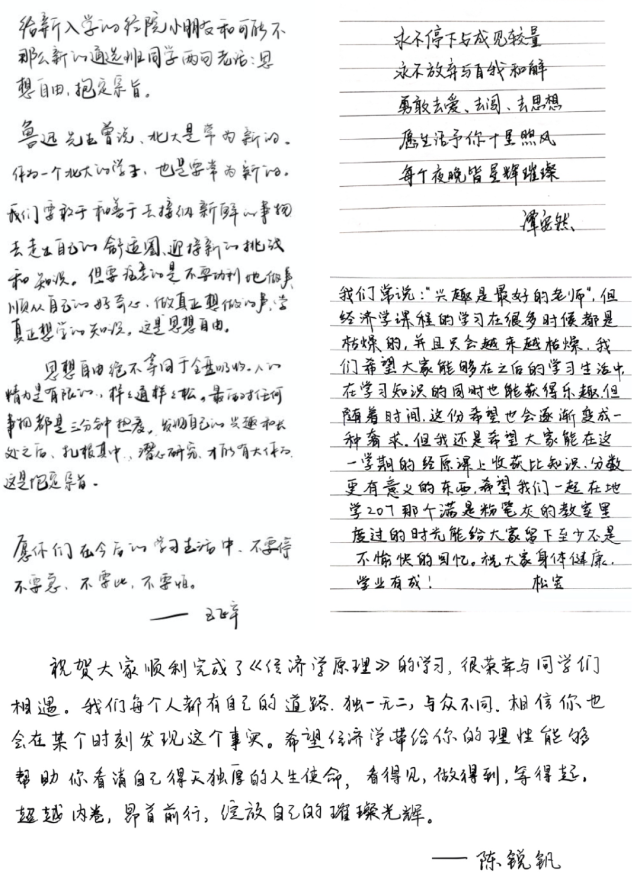 给新入学的经院小朋友和可能不
那么新的通选班同学两句老话：思
想自由，抱定宗旨。
鲁迅先生曾说，北大是常为新的。
作为一个北大的学子，也是要常为新的。
我们要敢于和善于去接纳新鲜的事物
去走出自己的舒适圈，迎接新的挑战
和知识。但要注意的是不要功利地做事，
顺从自己的好奇心，做真正想做的事，学
真正想学的知识。这是思想自由。
思想自由绝不等同于全盘吸收。人的
精力是有限的，样样通样样松。最忌对任何
事物都是三分钟热度。发掘自己的兴趣和长
处之后，扎根其中，潜心研究，才能有大作为，
这是抱定宗旨。
愿你们在今后的学习生活中，不要停
不要忘，不要此，不要怕。
永不停下与成见较量
永不放弃与自我和解
勇敢去爱、去闯、去思想
愿生活予你十里熙风
每个夜晚皆星辉璀璨
谭安然
我们常说：“兴趣是最好的老师”，但
经济学课程的学习在很多时候都是
枯燥的，并且只会越来越枯燥，我
们希望大家能够在之后的学习生活中
在学习知识的同时也能获得乐趣，但
随着时间，这份希望也会逐渐变成一
种奢求，但我还是希望大家能在这
一学期的经原课上收获比知识、分数
更有意义的东西，希望我们一起在地
学207那个满是粉笔灰的教室里
度过的时光能给大家留下至少不是
不愉快的回忆。祝大家身体健康，
学业有成！ 松宏
祝贺大家顺利完成了《经济学原理》的学习，很荣幸与同学们
相遇。我们每个人都有自己的道路，独一无二，与众不同，相信你也
会在某个时刻发现这个事实。希望经济学带给你的理性能够
帮助你看清自己得天独厚的人生使命，看得见，做得到，等得起。
超越内卷，昂首前行，绽放自己的璀璨光辉。
——陈锐钒